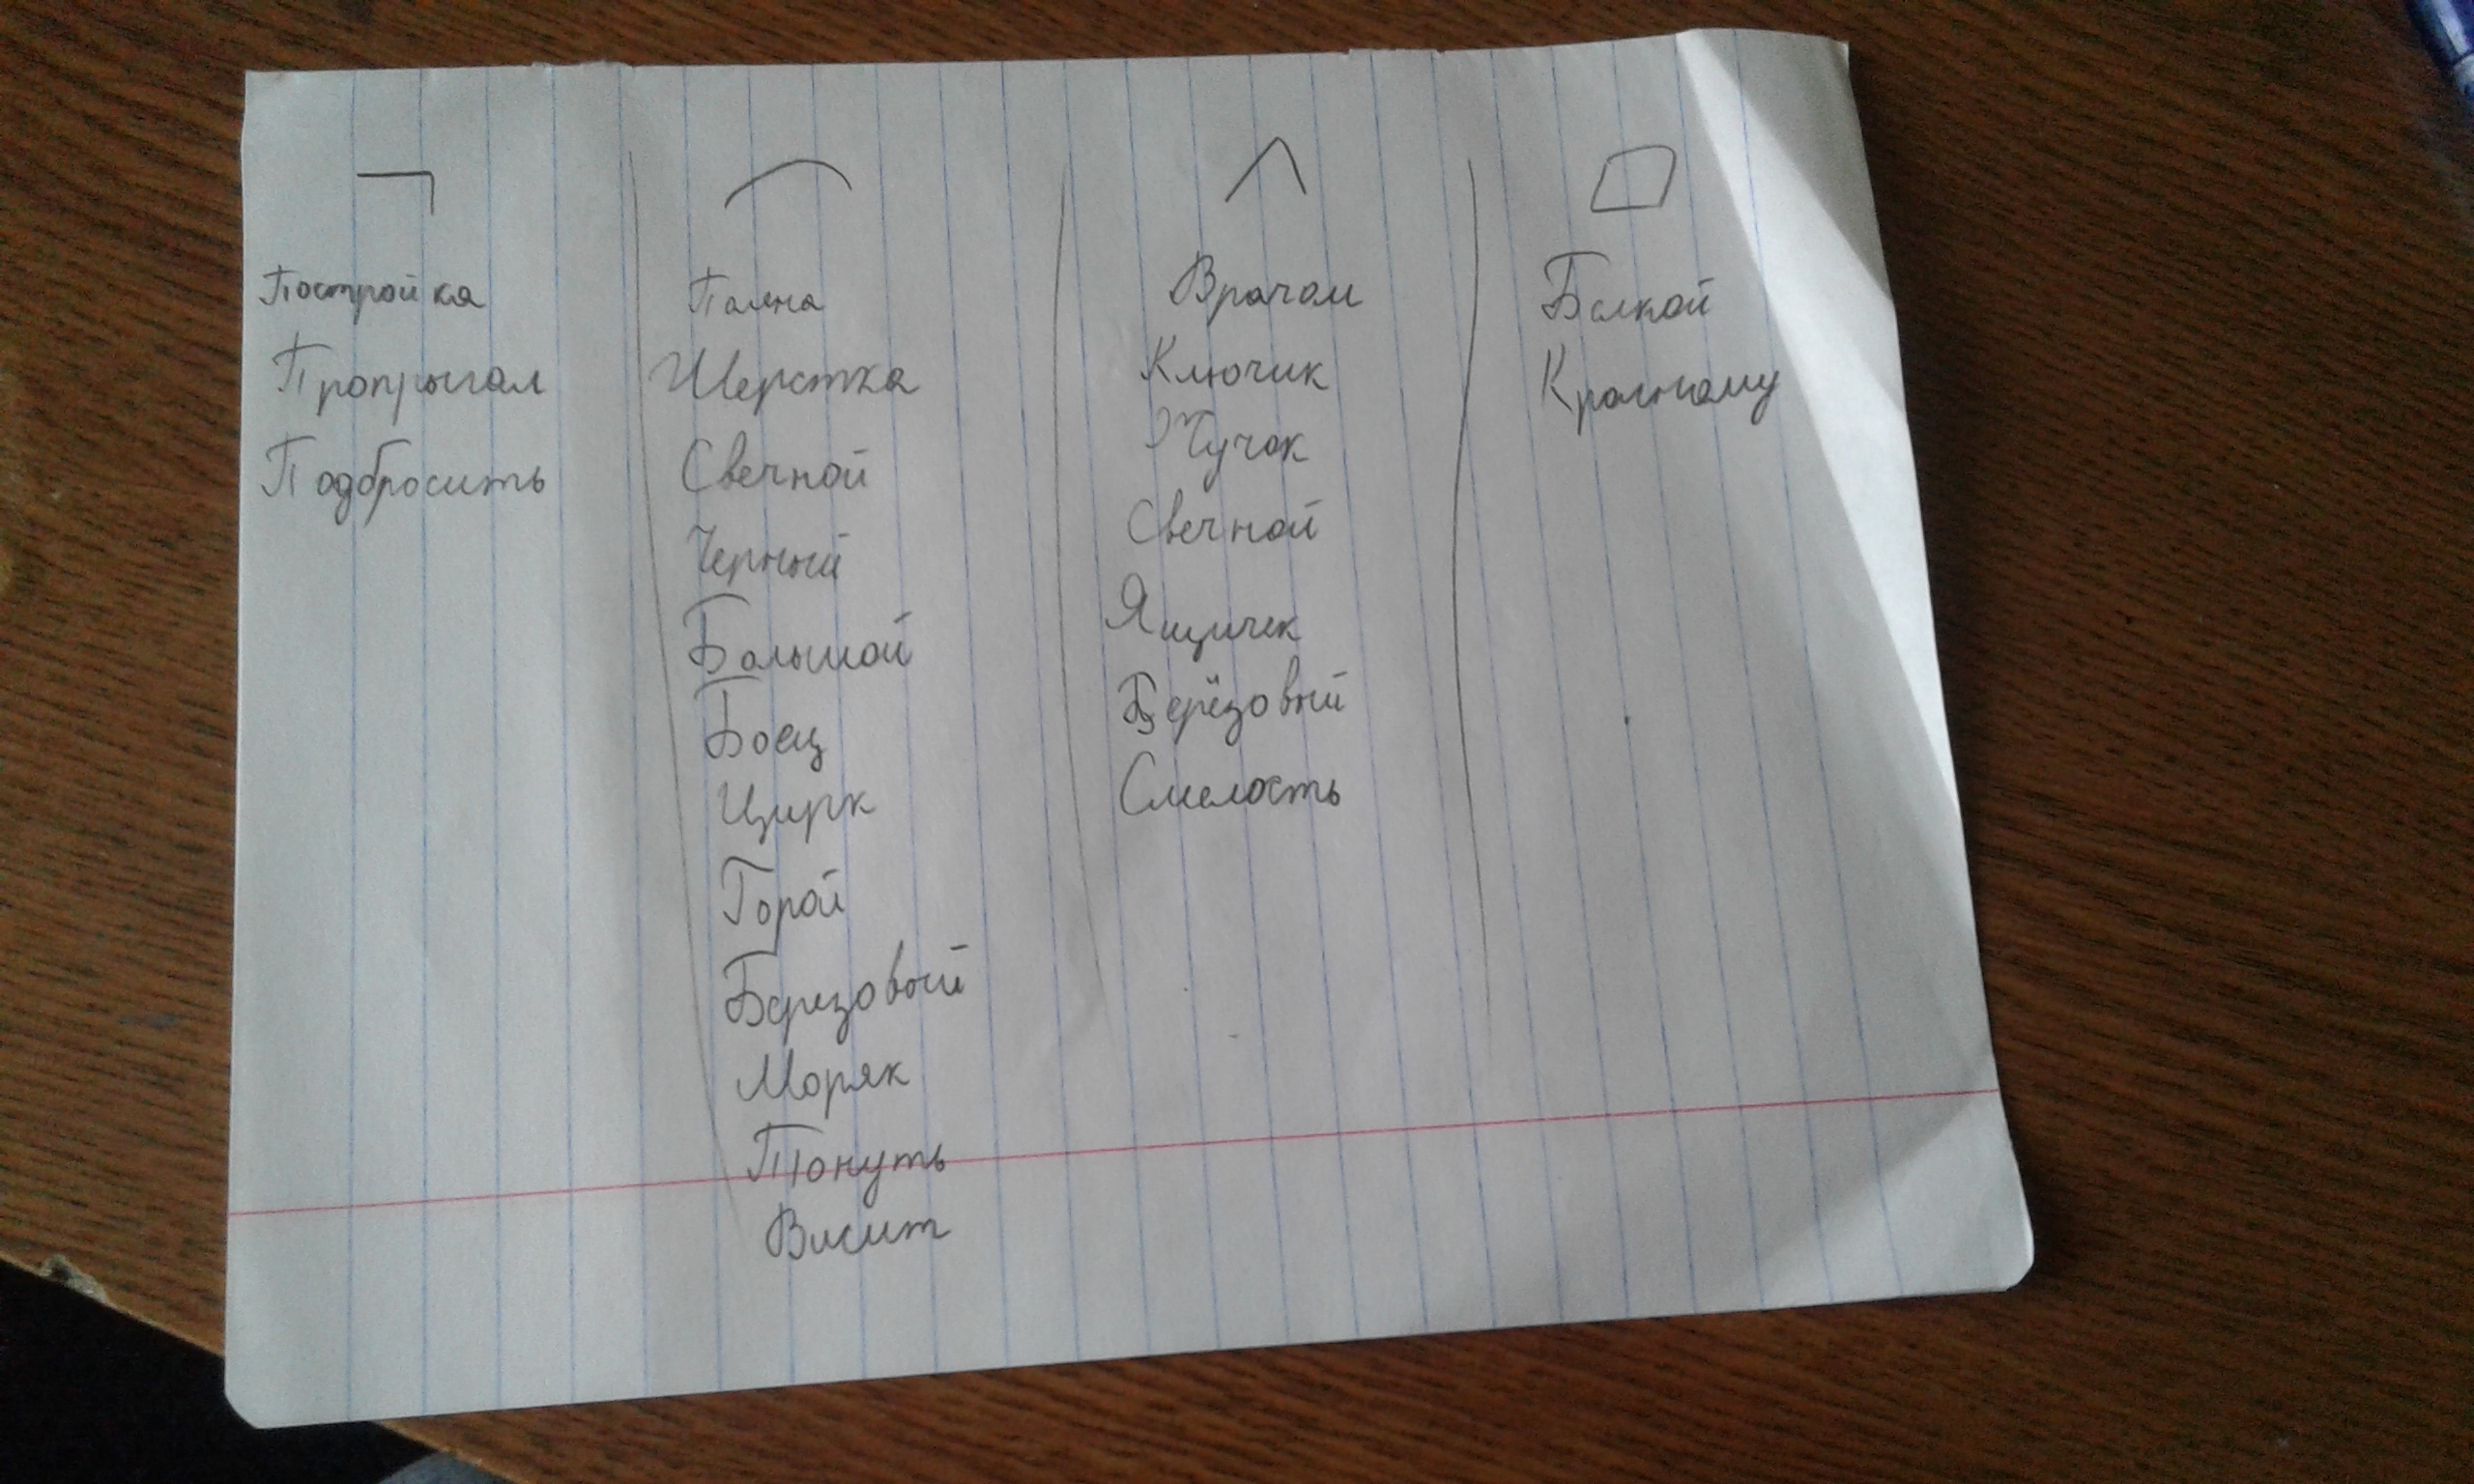 Постройка
Пропрыгал
Подбросить
Поляна
Шерстка
Свечной
Черный
Большой
Боец
Цирк
Горой
Березовый
Моряк
Тонуть
Висит
Врачом
Ключик
Жучок
Свечной
Ящичек
Берёзовый
Смелость
Белкой
Красному